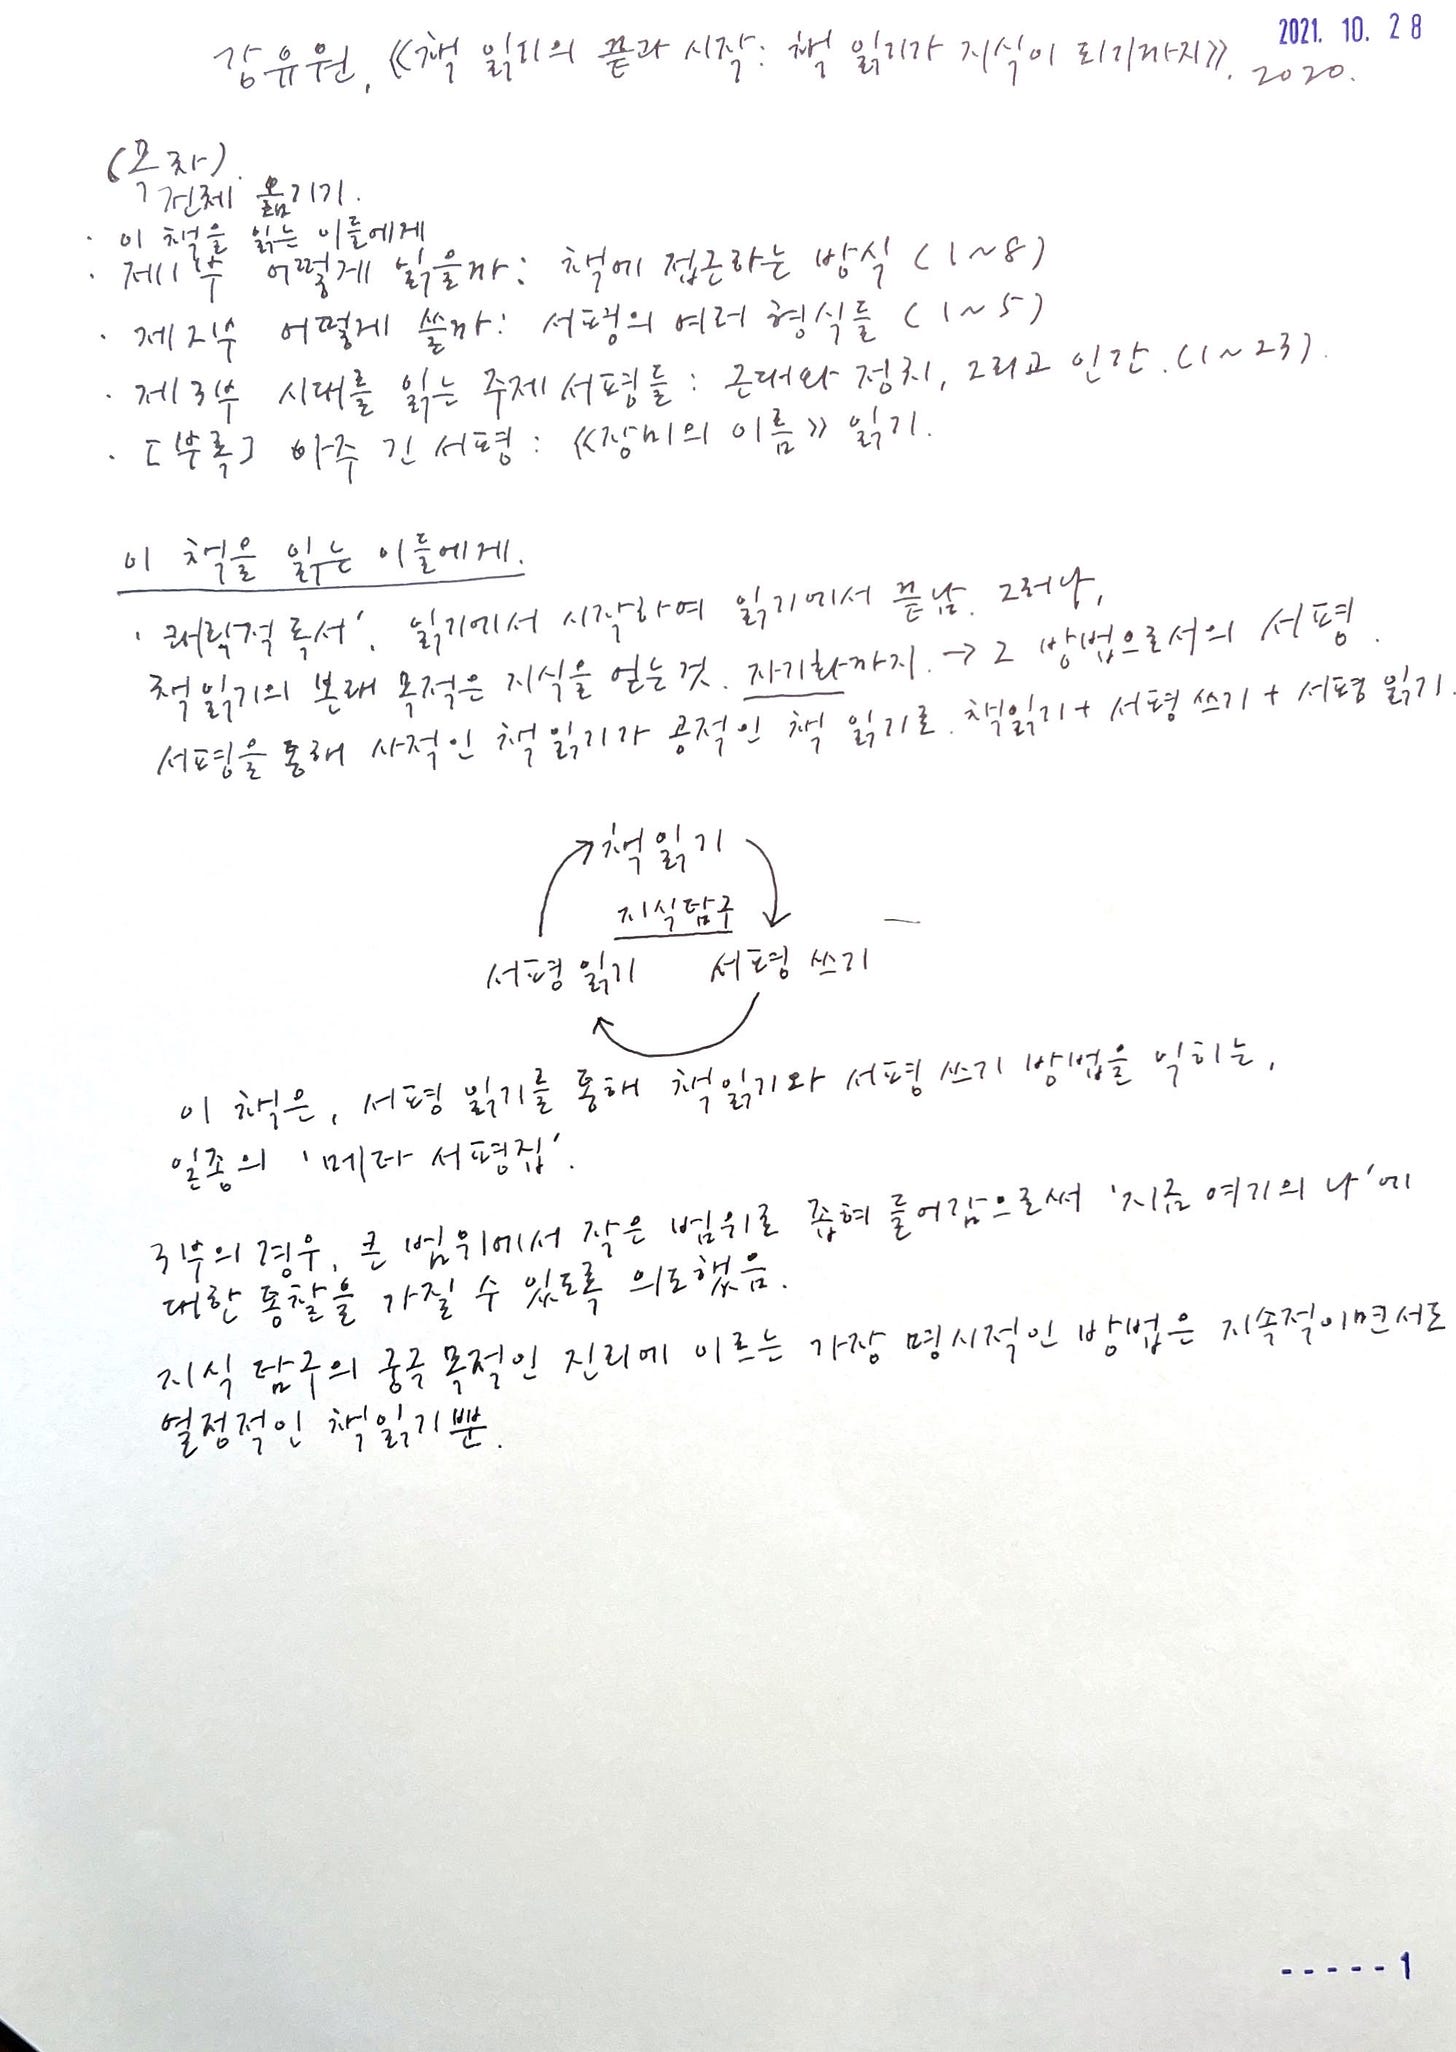 2021. 10. 28
강유원, 《책 읽기의 끝과 시작: 책 읽기가 지식이 되기까지》, 2020.
(목차).
전체 옮기기.
· 이 책을 읽는 이들에게
· 제1부 어떻게 읽을까: 책에 접근하는 방식 (1~8)
· 제2부 어떻게 쓸까: 서평의 여러 형식들 (1~5)
· 제3부 시대를 읽는 주제 서평들: 근대와 정치, 그리고 인간. (1~23).
· [부록] 아주 긴 서평: 《장미의 이름》 읽기.
이 책을 읽는 이들에게.
'쾌락적 독서'. 읽기에서 시작하여 읽기에서 끝남. 그러나,
책읽기의 본래 목적은 지식을 얻는 것. 자기화까지. → 그 방법으로서의 서평.
서평을 통해 사적인 책 읽기가 공적인 책 읽기로. 책읽기 + 서평 쓰기 + 서평 읽기.
책 읽기
지식탐구
서평 읽기 서평 쓰기
이 책은, 서평 읽기를 통해 책읽기와 서평 쓰기 방법을 익히는,
일종의 '메타 서평집'.
3부의 경우, 큰 범위에서 작은 범위로 좁혀 들어감으로써 '지금 여기의 나'에
대한 통찰을 가질 수 있도록 의도했음.
지식 탐구의 궁극 목적인 진리에 이르는 가장 명시적인 방법은 지속적이면서도
열정적인 책읽기뿐.
-----1